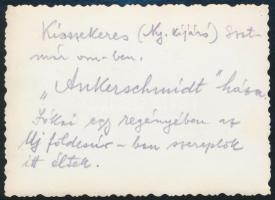 Kissekeres (Ny. kijáró) Szat-
már vm-ben.
„Ankerschmidt" háza.
Jókai egy regényében az
Új földesúr-ban szereplők
itt éltek.